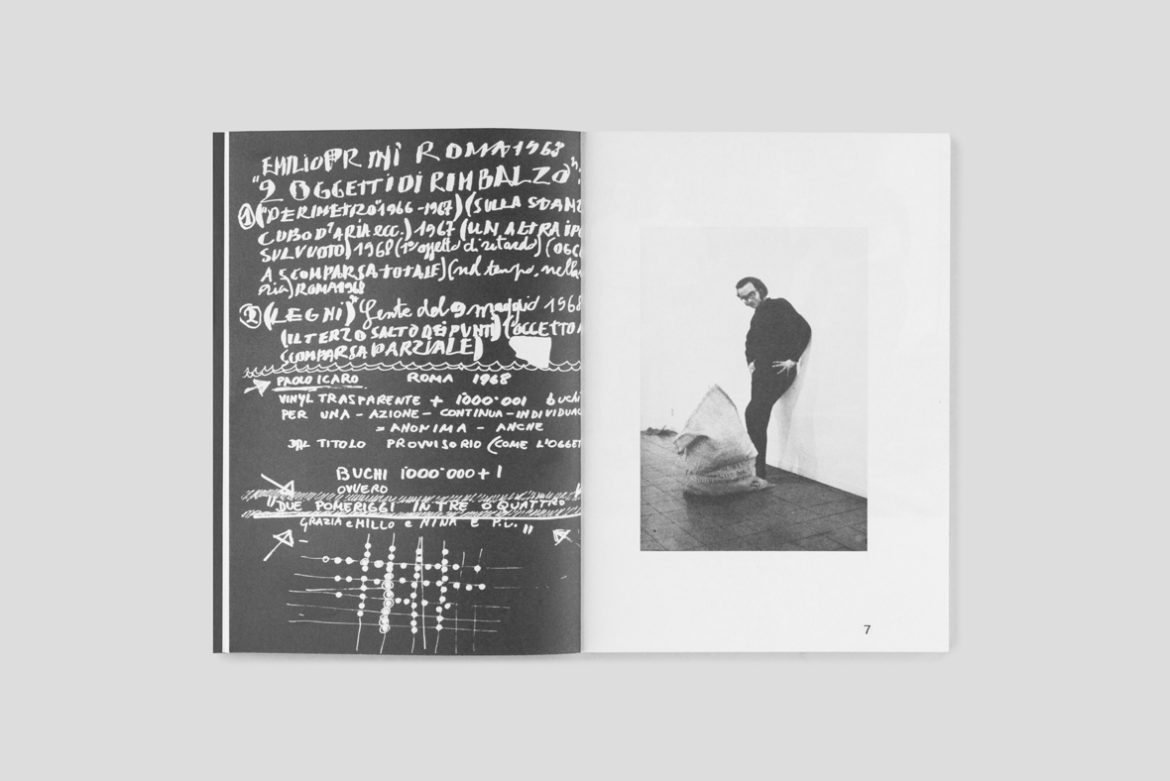 EMILIO PRINI ROMA 1968
"2 OGGETTI DI RIMBALZO":
① ("PERIMETRO" 1966-1967) (SULLA STANZ
CUBO D'ARIA ECC.) 1967 (UN ALTRA IPO
SUL VUOTO) 1968 (1° oggetto di ritardo) (OGG
A SCOMPARSA TOTALE) (nel tempo, nella
ria) ROMA 1968
② (LEGNI) Gente del 9 maggio 1968
(IL TERZO SALTO DEI PUNTI) (OGGETTO A
SCOMPARSA PARZIALE)
PAOLO ICARO ROMA 1968
VINYL TRASPARENTE + 1000'001 buchi
PER UNA - AZIONE - CONTINUA - INDIVIDUAL
= ANONIMA - ANCHE
DAL TITOLO PROVVISORIO (COME L'OGGET
BUCHI 1000'000 + 1
OVVERO
"DUE POMERIGGI IN TRE O QUATTRO
GRAZIA e MILLO e NINA E P.I."
7